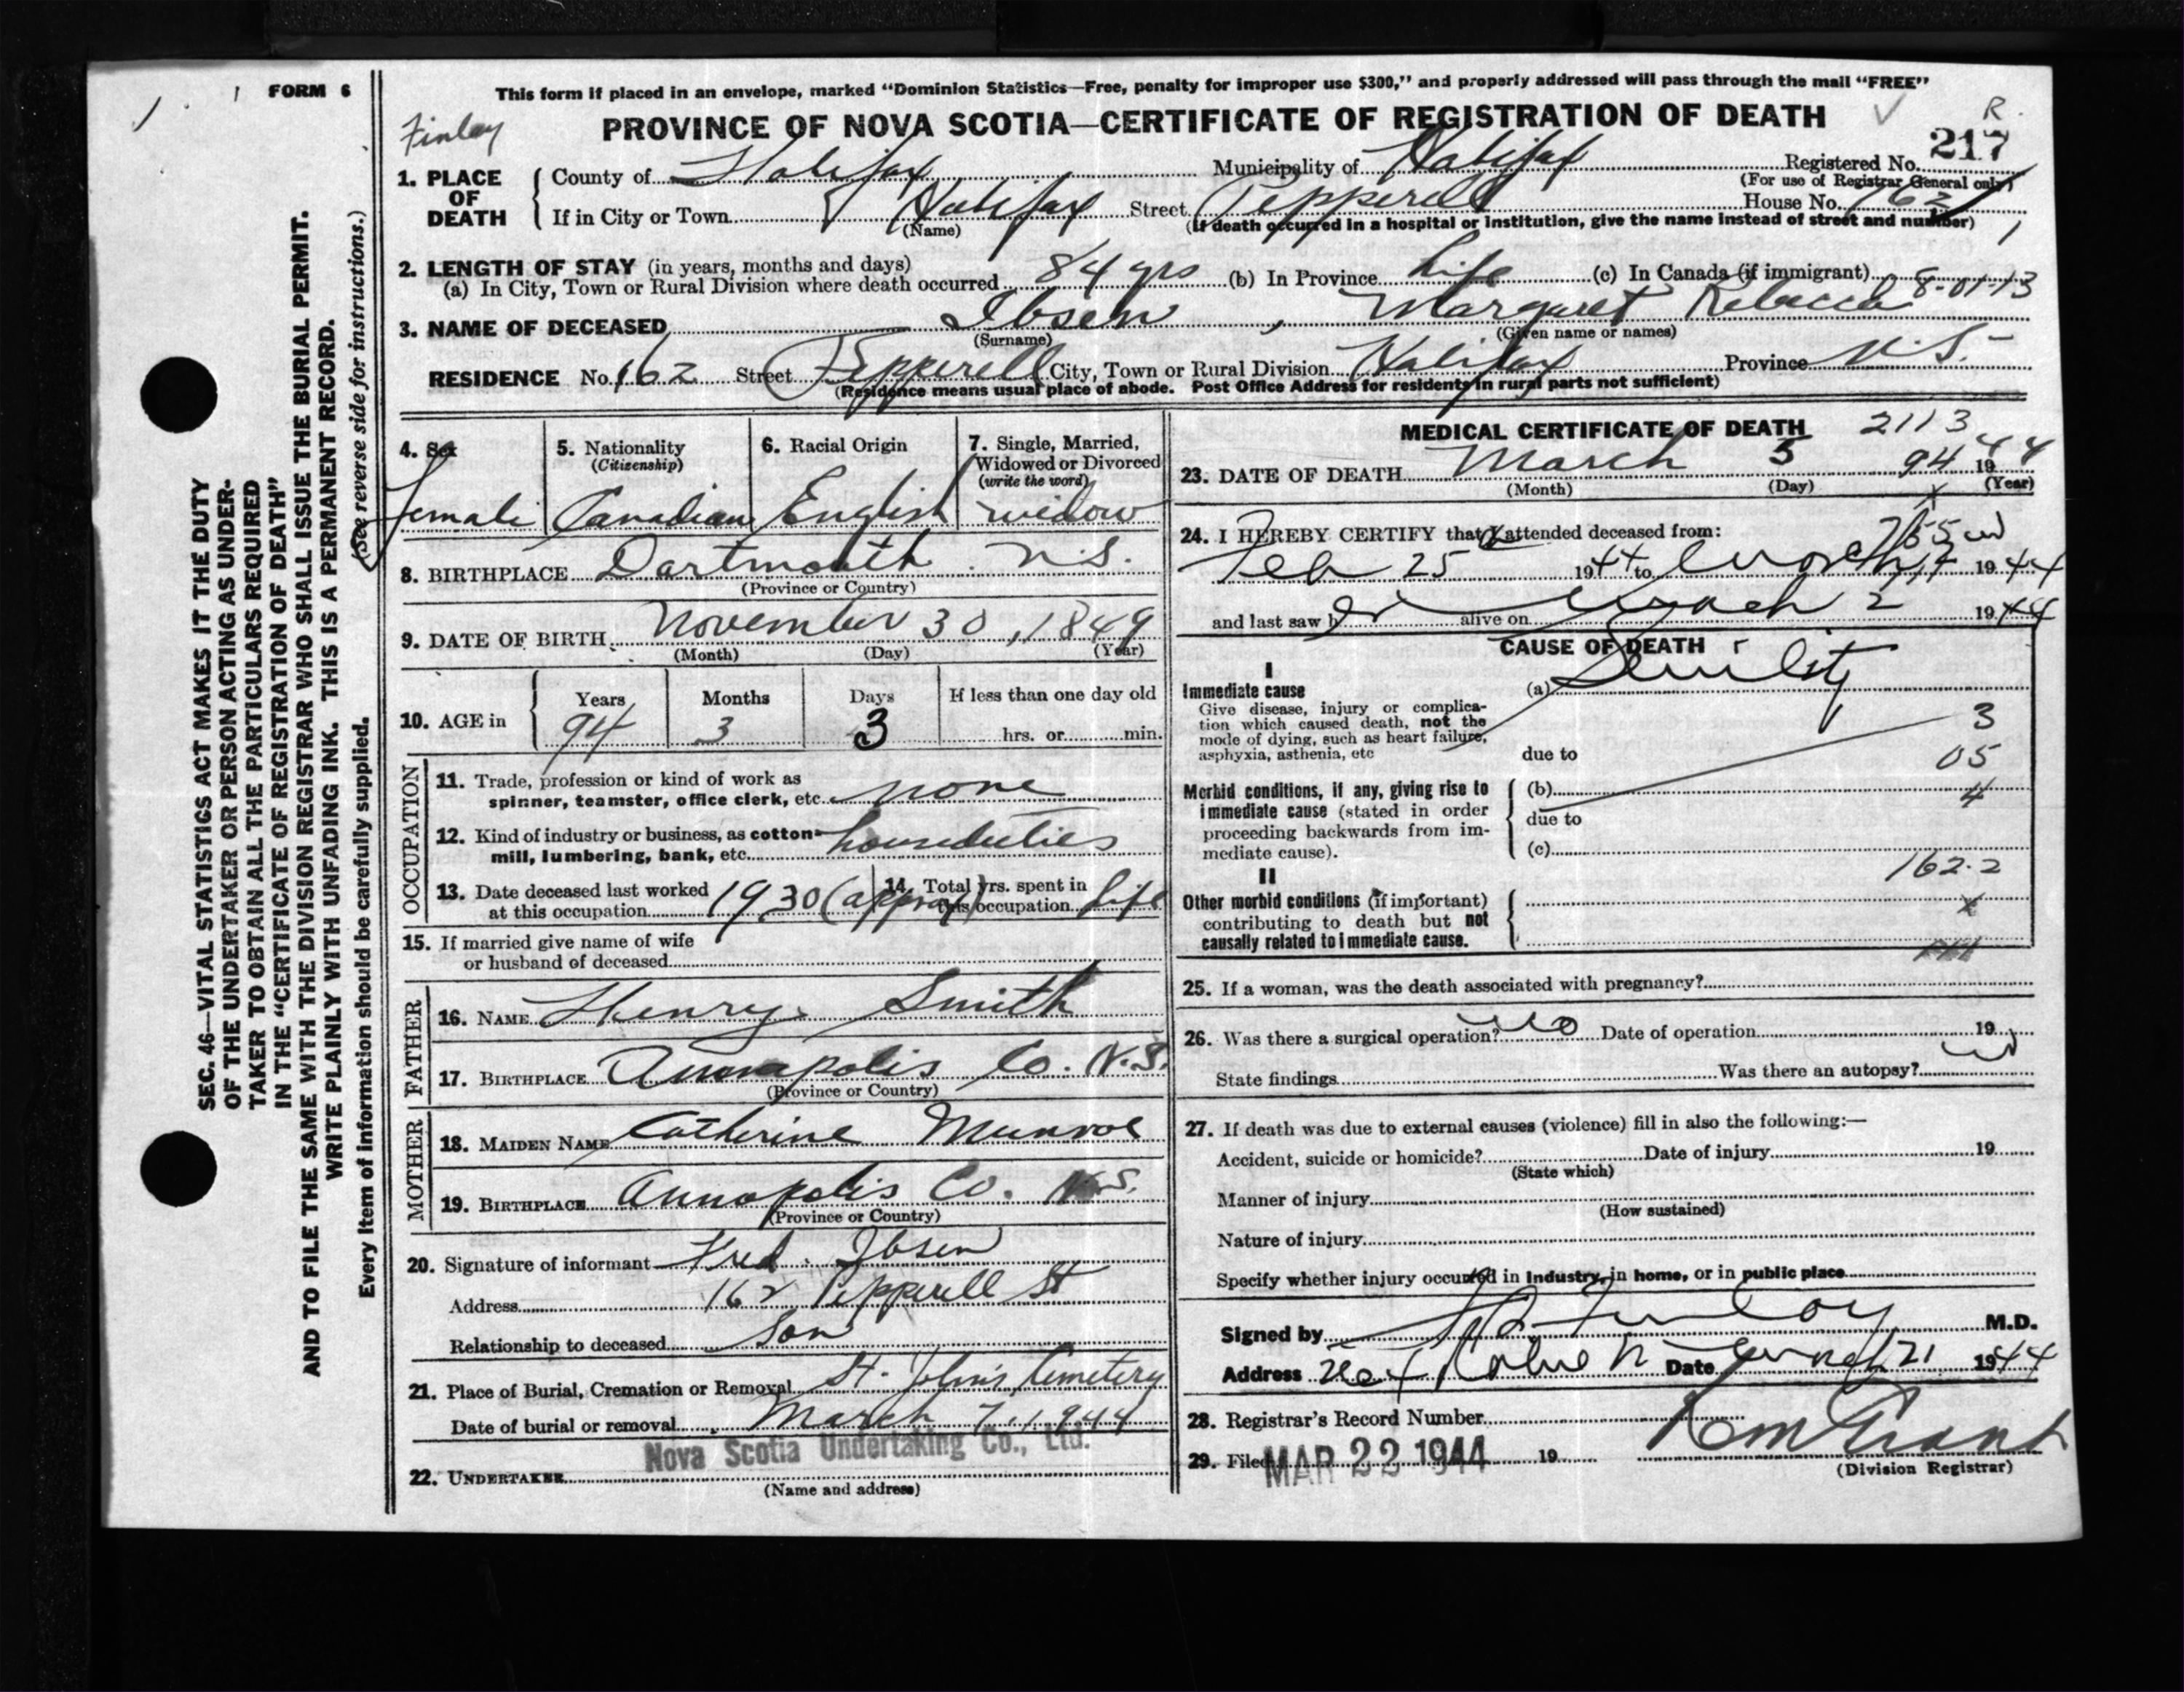 FORM 6
This form if placed in an envelope, marked “Dominion Statistics—Free, penalty for improper use $300,” and properly addressed will pass through the mail “FREE”
Finlay
PROVINCE OF NOVA SCOTIA—CERTIFICATE OF REGISTRATION OF DEATH
R.
217
1. PLACE OF DEATH
County of Halifax Municipality of Halifax Registered No.
(For use of Registrar General only)
If in City or Town Halifax Street Pepperell House No. 162
(Name) (If death occurred in a hospital or institution, give the name instead of street and number)
2. LENGTH OF STAY (in years, months and days)
(a) In City, Town or Rural Division where death occurred 84 yrs (b) In Province Life (c) In Canada (if immigrant) 8-01-13
3. NAME OF DECEASED Ibsen, Margaret Rebecca
(Surname) (Given name or names)
RESIDENCE No. 162 Street Pepperell City, Town or Rural Division Halifax Province N.S.
(Residence means usual place of abode. Post Office Address for residents in rural parts not sufficient)
4. Sex
Female
5. Nationality
(Citizenship)
Canadian
6. Racial Origin
English
7. Single, Married,
Widowed or Divorced
(write the word)
widow
8. BIRTHPLACE Dartmouth N.S.
(Province or Country)
9. DATE OF BIRTH November 30, 1849
(Month) (Day) (Year)
10. AGE in
Years Months Days If less than one day old
94 3 3 hrs. or min.
OCCUPATION
11. Trade, profession or kind of work as
spinner, teamster, office clerk, etc. none
12. Kind of industry or business, as cotton-
mill, lumbering, bank, etc. houseduties
13. Date deceased last worked
at this occupation 1930 (approx)
14. Total yrs. spent in
this occupation Life
15. If married give name of wife
or husband of deceased
FATHER
16. NAME Henry Smith
17. BIRTHPLACE Annapolis Co. N.S.
(Province or Country)
MOTHER
18. MAIDEN NAME Catherine Munroe
19. BIRTHPLACE Annapolis Co. N.S.
(Province or Country)
20. Signature of informant Fred Ibsen
Address 162 Pepperell St
Relationship to deceased Son
21. Place of Burial, Cremation or Removal St. John's Cemetery
Date of burial or removal March 7, 1944
Nova Scotia Undertaking Co., Ltd.
22. UNDERTAKER
(Name and address)
MEDICAL CERTIFICATE OF DEATH 2113
23. DATE OF DEATH March 5 94 1944
(Month) (Day) (Year)
24. I HEREBY CERTIFY that I attended deceased from:
Feb 25 1944 to 1944
and last saw her alive on March 2 1944
CAUSE OF DEATH
I
Immediate cause
Give disease, injury or complica-
tion which caused death, not the
mode of dying, such as heart failure,
asphyxia, asthenia, etc
(a) Senility
3
due to
05
Morbid conditions, if any, giving rise to
immediate cause (stated in order
proceeding backwards from im-
mediate cause).
(b)
4
due to
(c)
162.2
II
Other morbid conditions (if important)
contributing to death but not
causally related to immediate cause.
x
25. If a woman, was the death associated with pregnancy?
26. Was there a surgical operation? No Date of operation 19
State findings Was there an autopsy?
27. If death was due to external causes (violence) fill in also the following:—
Accident, suicide or homicide? Date of injury 19
(State which)
Manner of injury
(How sustained)
Nature of injury
Specify whether injury occurred in Industry, in home, or in public place
Signed by Finlay M.D.
Address Date 21 1944
28. Registrar's Record Number
29. Filed MAR 22 1944 19
Grant
(Division Registrar)
SEC. 46—VITAL STATISTICS ACT MAKES IT THE DUTY
OF THE UNDERTAKER OR PERSON ACTING AS UNDER-
TAKER TO OBTAIN ALL THE PARTICULARS REQUIRED
IN THE “CERTIFICATE OF REGISTRATION OF DEATH”
AND TO FILE THE SAME WITH THE DIVISION REGISTRAR WHO SHALL ISSUE THE BURIAL PERMIT.
WRITE PLAINLY WITH UNFADING INK. THIS IS A PERMANENT RECORD.
Every item of information should be carefully supplied. (See reverse side for instructions.)